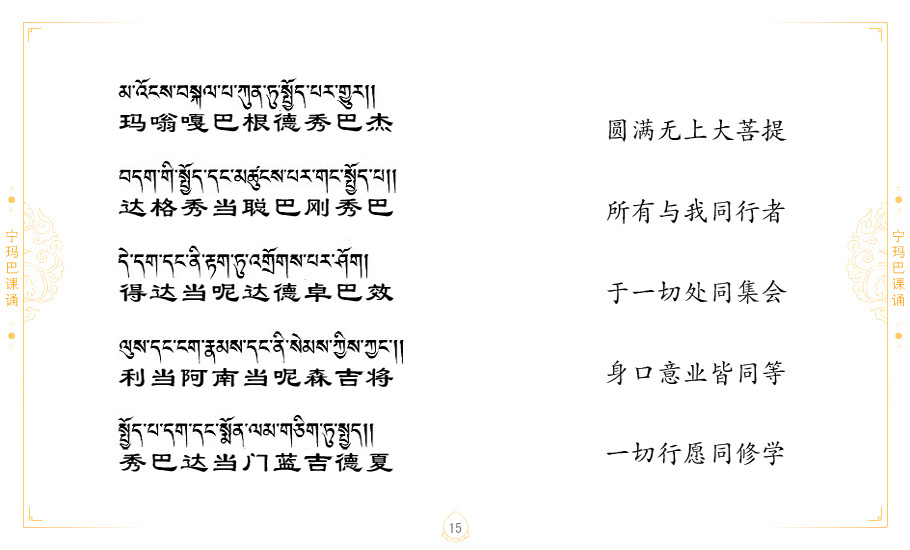 མ་འོངས་བསྐལ་པ་ཀུན་ཏུ་སྤྱོད་པར་གྱུར།།
玛嗡嘎巴根德秀巴杰
བདག་གི་སྤྱོད་དང་མཚུངས་པར་གང་སྤྱོད་པ།།
达格秀当聪巴刚秀巴
དེ་དག་དང་ནི་རྟག་ཏུ་འགྲོགས་པར་ཤོག།
得达当呢达德卓巴效
ལུས་དང་ངག་རྣམས་དང་ནི་སེམས་ཀྱིས་ཀྱང་།།
利当阿南当呢森吉将
སྤྱོད་པ་དག་དང་སྨོན་ལམ་གཅིག་ཏུ་སྤྱད།།
秀巴达当门蓝吉德夏
圆满无上大菩提
所有与我同行者
于一切处同集会
身口意业皆同等
一切行愿同修学
宁玛巴课诵
宁玛巴课诵
15